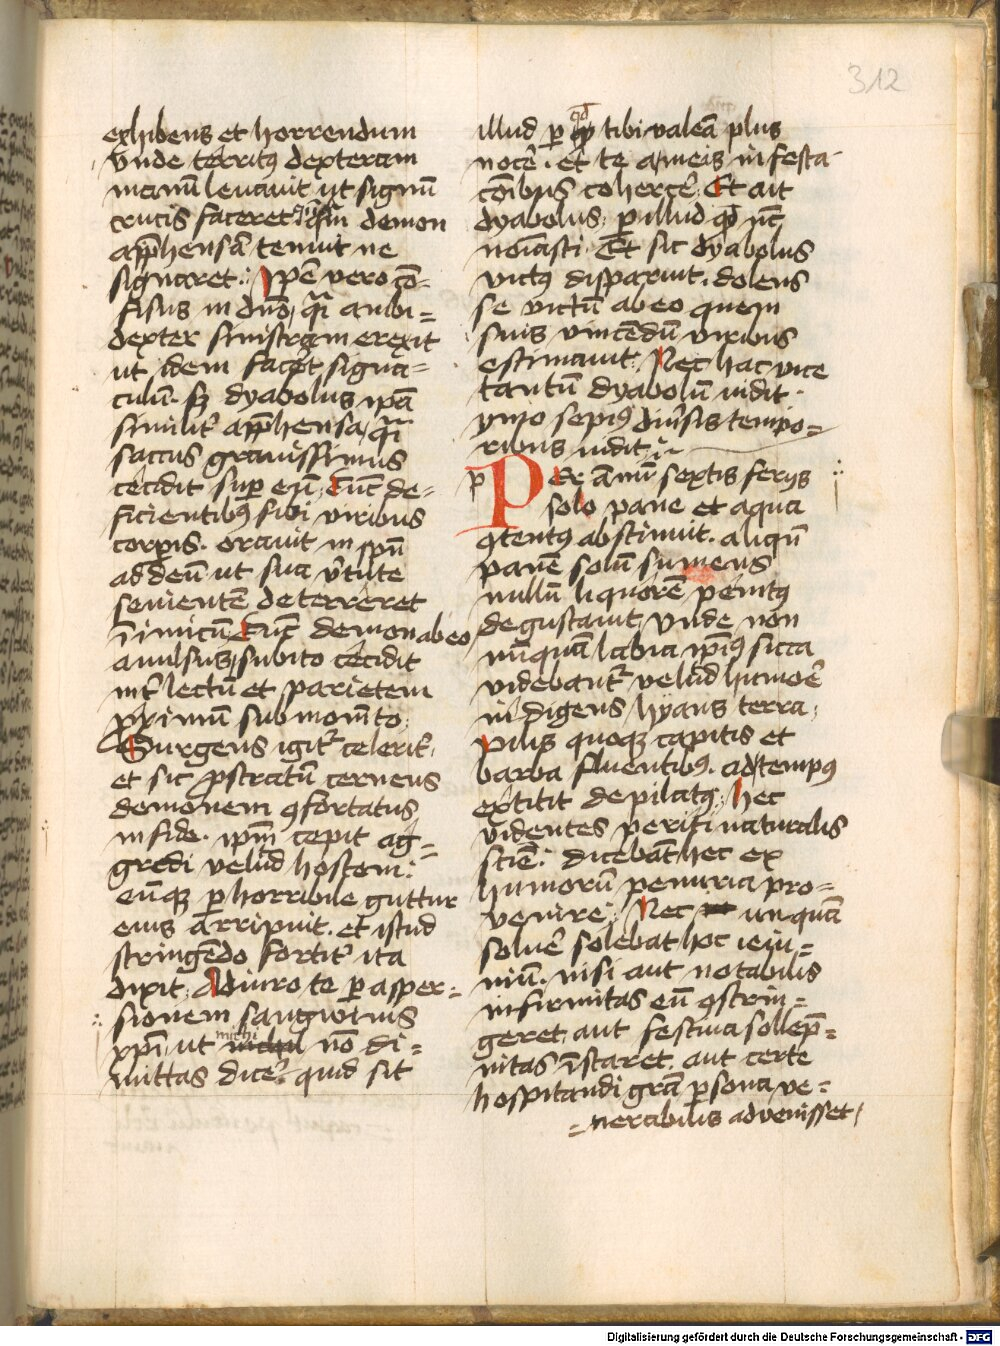 312
exhibens et horrendum
Vnde territꝰ dexteram
manū leuauit ut signū
crucis faceret demon
app̄hensā tenuit ne
signaret. Ip̄e vero cō-
fisus in dn̄o q̄i ambi=
dexter sinistram erexit
ut idem facēt signa=
culum. Sꝫ dyabolus ip̄ā
similitˀ app̄hensa q̄i
saccus grauissimus
cecidit suꝑ eū. Tūc de=
ficientibꝰ sibi viribus
corꝑis. orauit in sp̄u
ad deū ut sua v̓tute
seuientē deterreret
inimicū. Tūc demon ab eo
auulsus subito cecidit
int̓ lectū et parietem
ꝓximū sub momēto.
Surgens igit̓ celerit̓.
et sic ꝓstratū cernens
demonem ꝯfortatus
in fide. ip̄m cepit ag=
gredi velud hostem.
eūqꝫ ꝑ horribile guttur
eius arripuit. et istud
stringēdo fortit̓ ita
dixit. Adiuro te ꝑ asper=
sionem sangwinis
xp̄i ut michi nō di=
mittas dicē. quid sit
illud ꝑ qd̄ tibi valeā plus
nocē. et te a meis infesta-
cōibus cohercē. Et ait
dyabolus. ꝑ illud qd̄ nūc
noīasti. Et sic dyabolus
victꝰ disparuit. dolens
se victū ab eo quem
suis vincēdū viribus
estimauit. Nec hac vice
tantū dyabolū uidit.
ymo sepiꝰ diūsis tempo=
ribus uidit
p PEr annū sextis ferijs
solo pane et aqua
ꝯtentꝰ abstinuit. aliqn̄
panē solū sumens
nullū liquorē penitꝰ
degustauit. Vnde non
nūquā labia ip̄iꝰ sicca
videbant̓ velud humorē
indigens hyans terra.
Pilis quoqꝫ capitis et
barba fluentibꝰ. ad tempꝰ
extitit depilatꝰ. Hec
videntes periti naturalis
sciē. dicebāt hec ex
humorū penuria pro=
venire. Nec unquā
soluē solebat hoc ieiu=
niū. nisi aut notabilis
infirmitas eū ꝯstrin=
geret. aut festiua sollēp=
nitas īstaret. aut certe
hospitandi grā ꝑsona ve=
=nerabilis advenisset
Digitalisierung gefördert durch die Deutsche Forschungsgemeinschaft - DFG